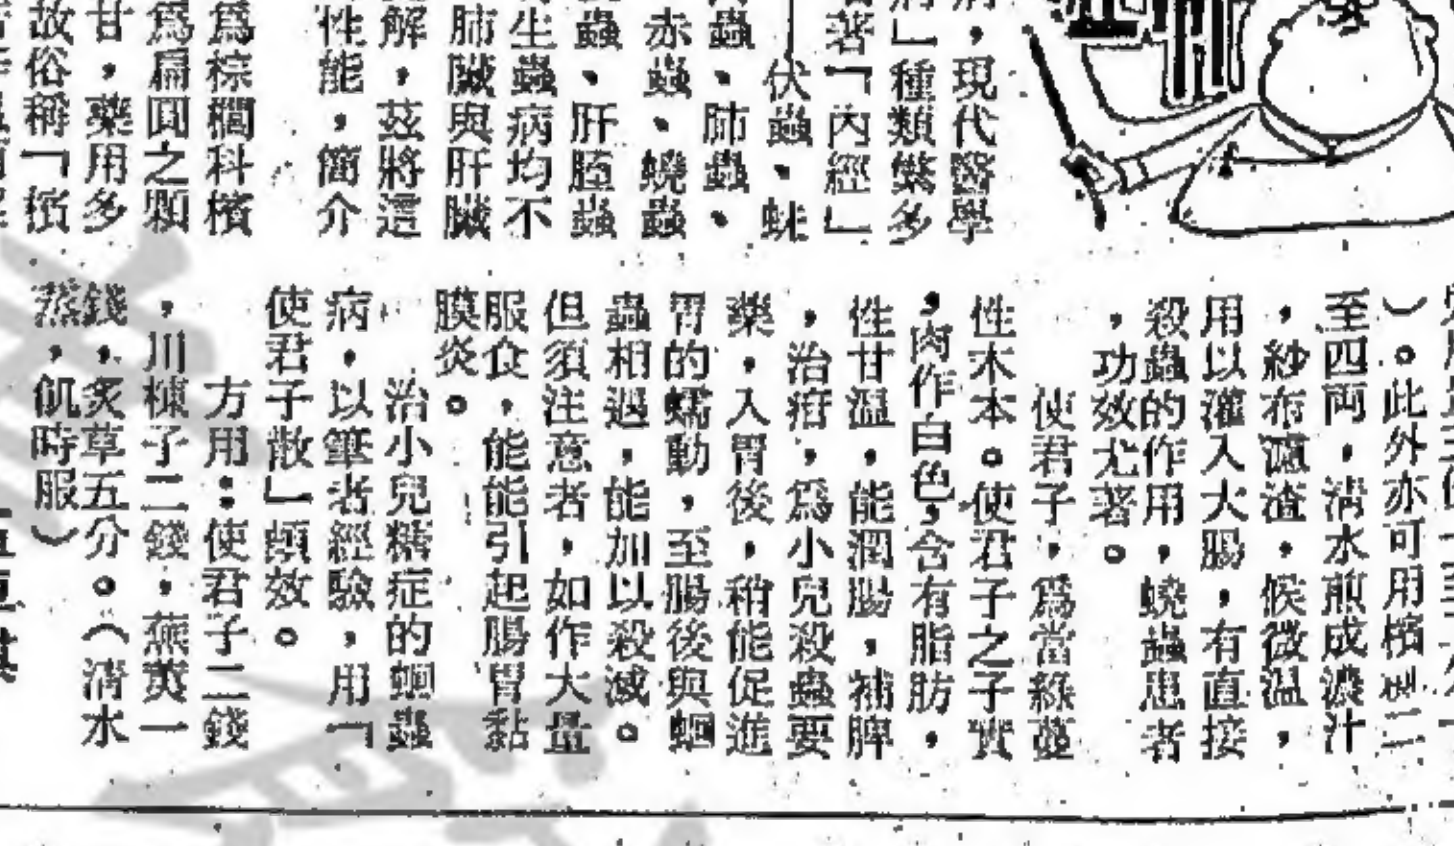 病,現代醫學
病」種類繁多
著「內經」
伏蟲、蚘
蟲、肺蟲、
赤蟲、蟯蟲
蟲、肝蛭蟲
生蟲病均不
肺臟與肝臟
解,茲將這
性能,簡介
為棕櫚科檳
為扁圓之顆
甘,藥用多
故俗稱「檳
)。此外亦可用檳榔二
至四兩,清水煎成濃汁
,紗布濾渣,候微温,
用以灌入大腸,有直接
殺蟲的作用,蟯蟲患者
,功效尤著。
使君子,為當綠蔓
性木本。使君子之子實
,肉作白色,含有脂肪,
性甘温,能潤腸,補脾
,治疳,為小兒殺蟲要
藥,入胃後,稍能促進
胃的蠕動,至腸後與蛔
蟲相遇,能加以殺滅。
但須注意者,如作大量
服食,能能引起腸胃黏
膜炎。
治小兒糖症的蛔蟲
病,以筆者經驗,用「
使君子散」頗效。
方用:使君子二錢
,川楝子二錢,蕪荑一
錢,炙草五分。(清水
蒸,飢時服)